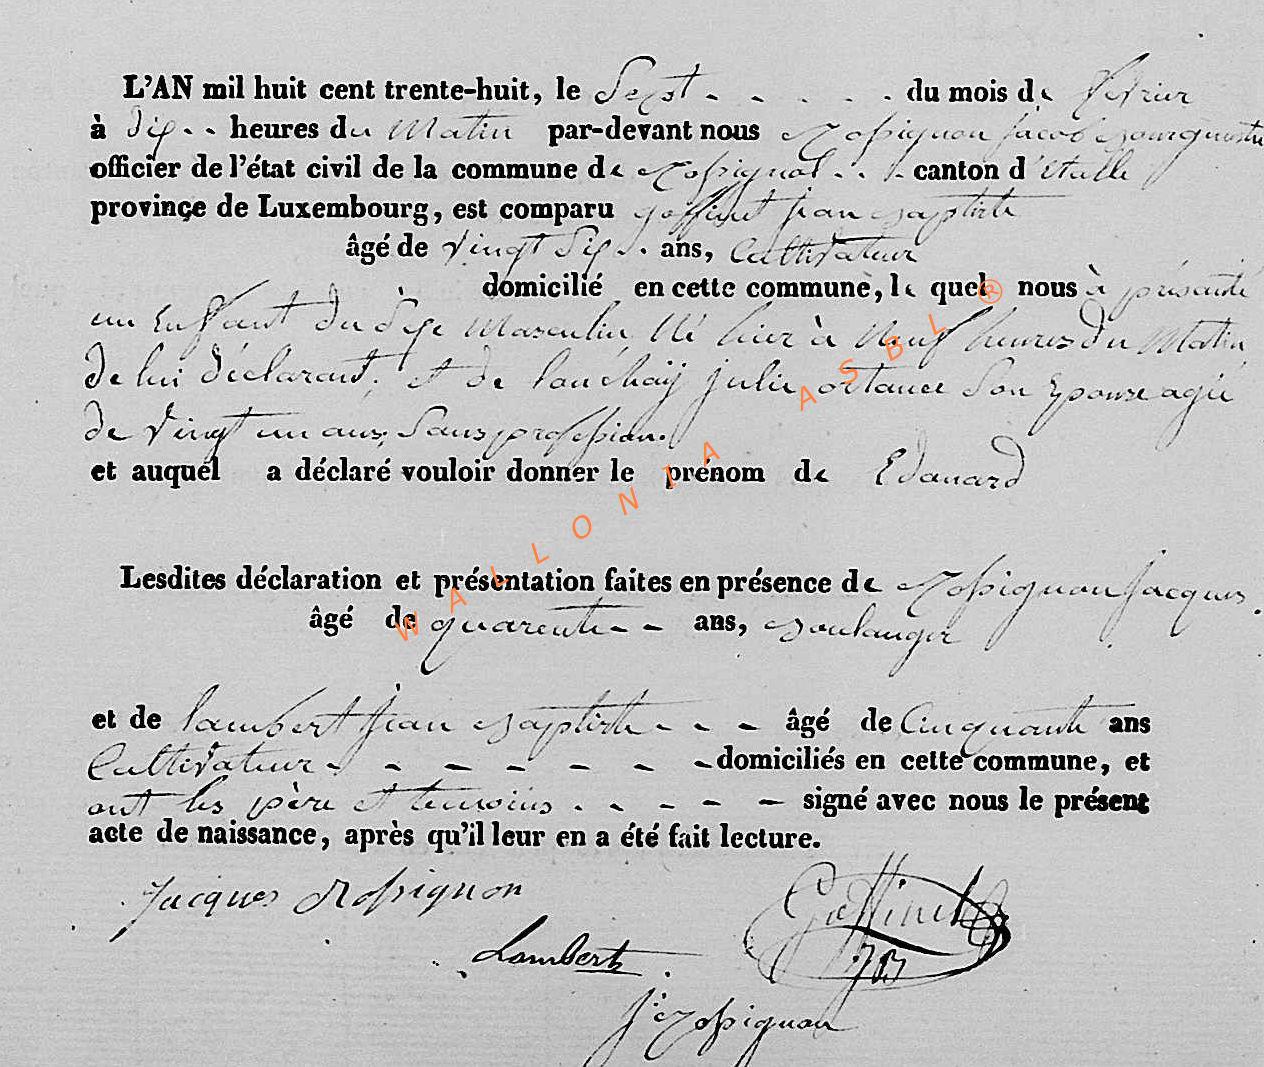 L'AN mil huit cent trente-huit, le Sept - - - - - du mois de février
à dix - - heures du Matin par-devant nous Rossignon Jacob Bourguestre
officier de l'état civil de la commune de Rossignol - - - canton d'étalle
province de Luxembourg, est comparu Goffinet jean Baptiste
âgé de vingt Six - ans, Cultivateur
domicilié en cette commune, le quel nous à présenté
un Enfant du Sexe Masculin, Né hier à Neuf heures du Matin
de lui déclarant, et de Lauchaij julie ortance Son Epouse agée
de vingt un ans, Sans profession.
et auquel a déclaré vouloir donner le prénom de Edouard
Lesdites déclaration et présentation faites en présence de Rossignon Jacques
âgé de quarente - - ans, Boulanger
et de lambert jean Baptiste - - - âgé de Cinquante ans
Cultivateur - - - - - - - domiciliés en cette commune, et
ont les père et temoins - - - - - signé avec nous le présent
acte de naissance, après qu'il leur en a été fait lecture.
Jacques Rossignon
Goffinet
JB
Lambert
J: Rossignon
WALLONIA ASBL ®